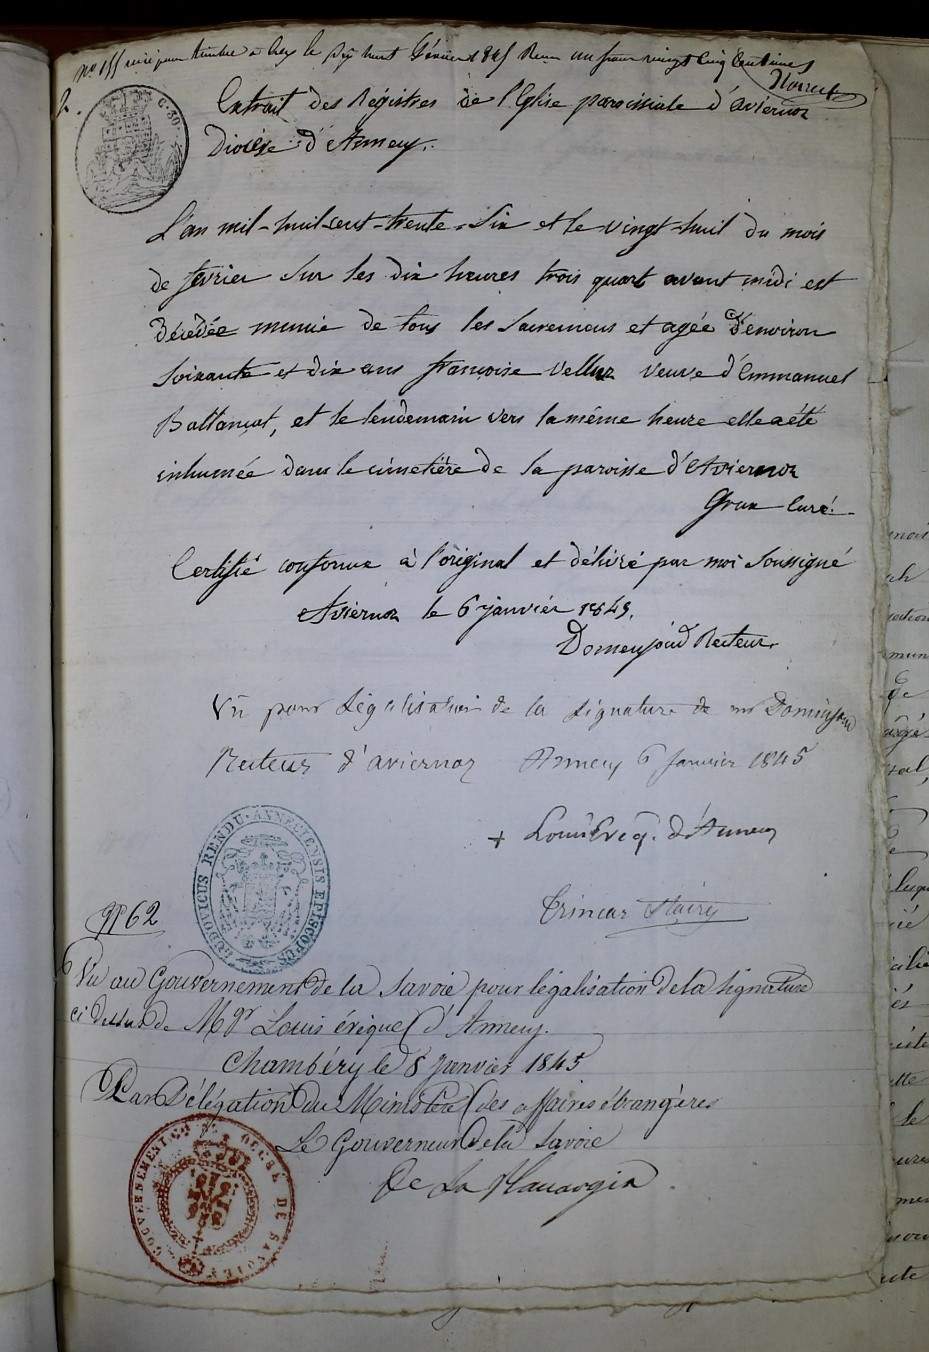 le dix huit Février 1845 Reçu un franc vingt cinq Centimes
2.
C. 30.
Extrait des Régistres de l'Eglise paroissiale d'aviernoz
Diocèse d'Annecy.
L'an mil-huit-cent-trente-six et le vingt-huit du mois
de fevrier sur les dix heures trois quart avant midi est
Décedée munie de tous les sacremens et agée d'environ
soixante et dix ans françoise veuve d'Emmanuel
et le lendemain vers la même heure elle a été
inhumée dans le cimetière de la paroisse d'Aviernoz
Curé.
Certifié conforme à l'original et délivré par moi soussigné
Aviernoz le 6 janvier 1845.
Domenjoud Recteur
Vu pour Légalisation de la signature de mr Domenjoud
Recteur d'aviernoz Annecy 6 janvier 1845
+ Louis Evêq. d'Annecy
LUDOVICUS RENDU ANNECIENSIS EPISCOPUS
N° 62
Vu au Gouvernement de la Savoie pour légalisation de la signature
ci dessus de Mgr Louis évêque d'Annecy.
Chambéry le 8 Janvier 1845
Par Délégation du Ministre des affaires étrangères
Le Gouverneur de la Savoie
De La
GOUVERNEMENT DU DUCHÉ DE SAVOIE